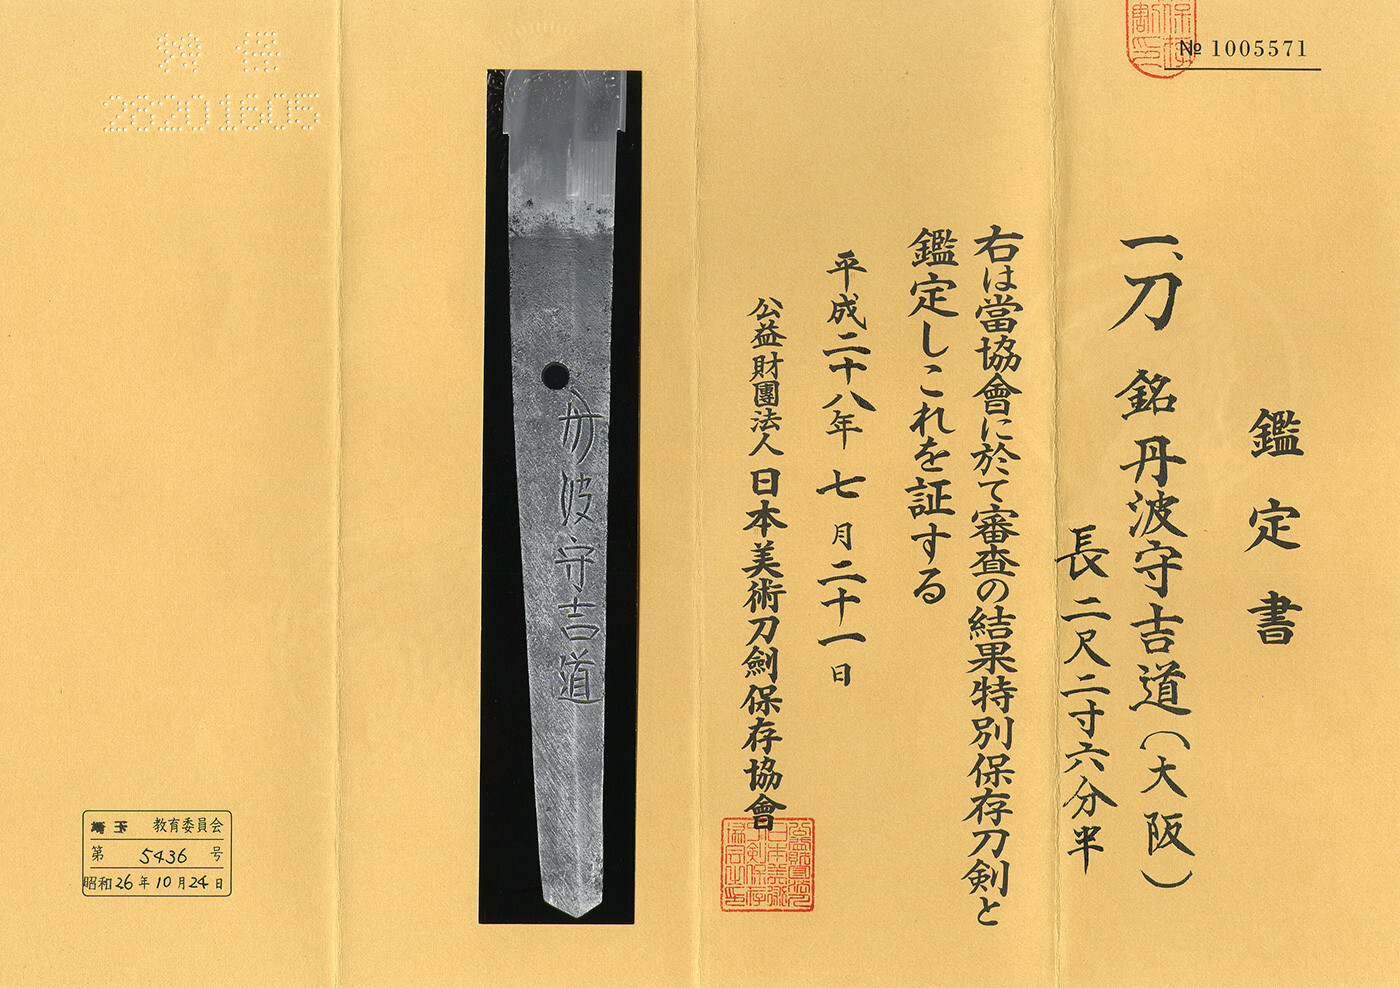 № 1005571
鑑定書
一、刀 銘 丹波守吉道(大阪)
長二尺二寸六分半
右は當協會に於て審査の結果特別保存刀剣と
鑑定しこれを証する
平成二十八年 七月二十一日
公益財團法人 日本美術刀劍保存協會
丹波守吉道
28201605
埼玉 教育委員会
第 5436 号
昭和26年10月24日